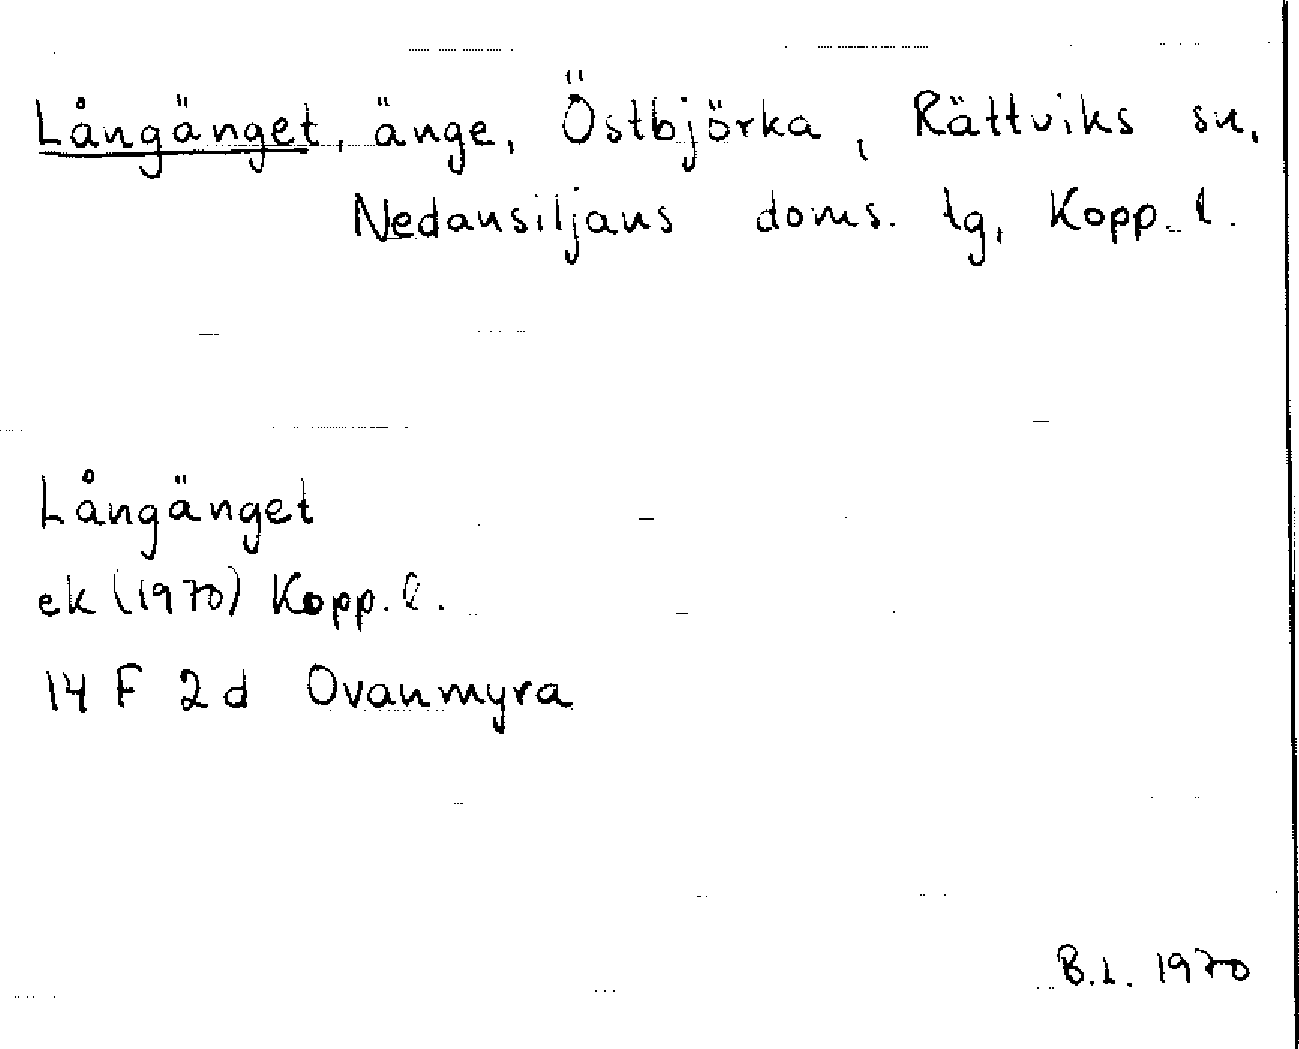 Långänget, änge, Östbjörka, Rättviks sn,
Nedansiljans doms. lg, Kopp. l.
Långänget
ek (1970) Kopp. l.
14 F 2d Ovanmyra
B.L. 1970